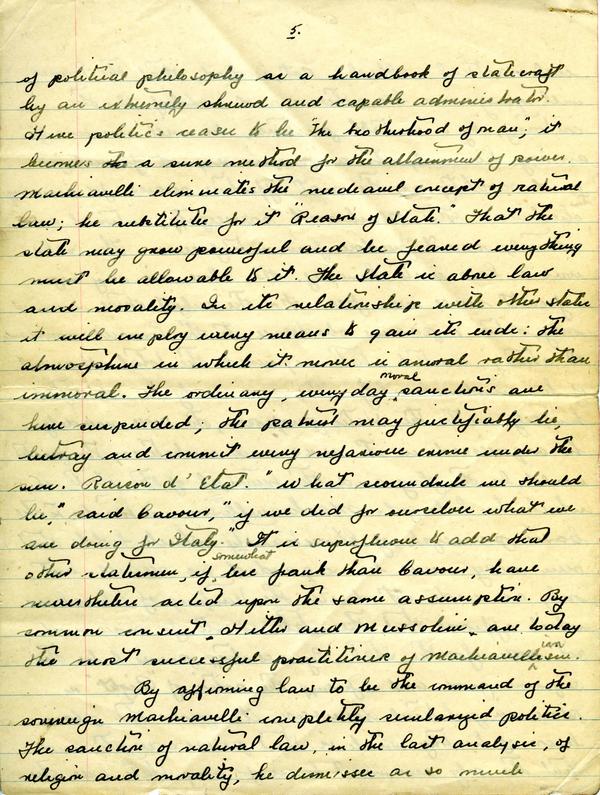 5.
of political philosophy as a handbook of statecraft
by an extremely shrewd and capable administrator.
Here politics ceases to be "the brotherhood of man"; it
becomes a sure method for the attainment of power.
Machiavelli eliminates the medieval concept of natural
law; he substitutes for it "Reason of State." That the
state may grow powerful and be feared everything
must be allowable to it. The State is above law
and morality. In its relationships with other states
it will employ every means to gain its ends: the
atmosphere in which it moves is amoral rather than
immoral. The ordinary, everyday moral sanctions are
here suspended; the patriot may justifiably lie,
betray and commit every nefarious crime under the
sun. Raison d' Etat. "What scoundrels we should
be," said Cavour, "if we did for ourselves what we
are doing for Italy." It is superfluous to add that
other statesmen, if somewhat less frank than Cavour, have
nevertheless acted upon the same assumption. By
common consent, Hitler and Mussolini, are today
the most successful practitioners of Machiavellianism.
By affirming law to be the command of the
sovereign Machiavelli completely secularized politics.
The sanction of natural law, in the last analysis, of
religion and morality, he dismisses as so much